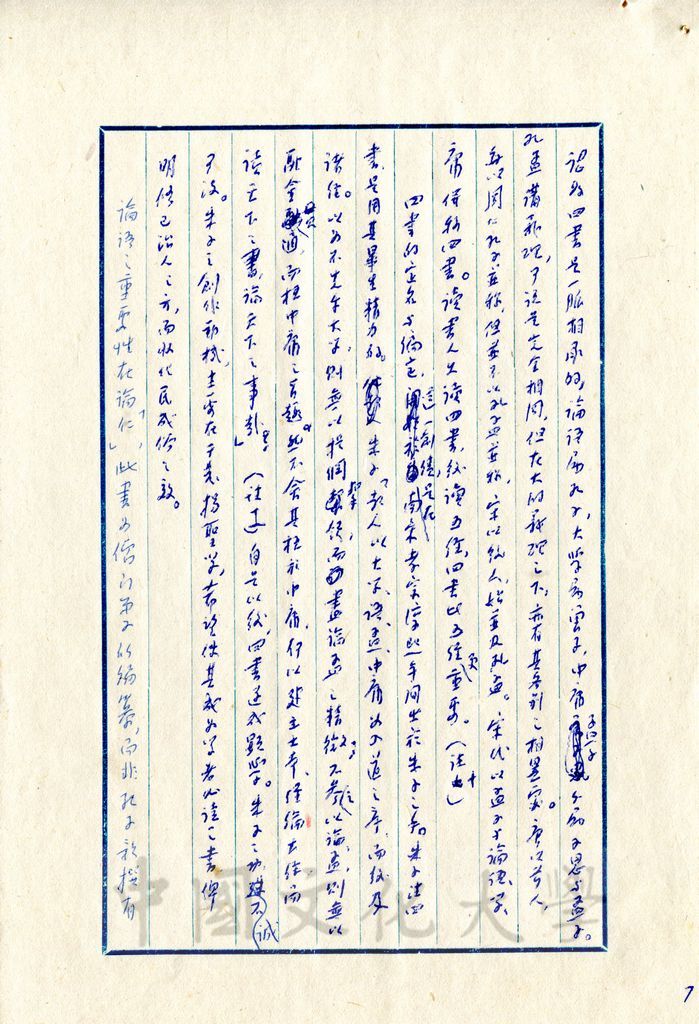 認為四書是一脈相承的,論語屬孔子,大學屬曾子,中庸子思子分屬子思與孟子。
孔孟講義理,可說是完全相同,但在大的義理之下,亦有其各別之相異處。唐以前人,
每以周公孔子並稱,但並不以孔子孟並稱,宋以後人,始並及孔孟。宋代以孟子與論語、學、
庸併稱四書。讀書人先讀四書,後讀五經,四書比五經更重要。(註十)
四書的定名與編定,這一創績,是在南宋孝宗淳熙年間出於朱子之手。朱子注四
書,是用其畢生精力的。朱子「教人以大學、語、孟、中庸為入道之序,而後及
諸經。以為不先乎大學,則無以提綱挈領,而盡論孟之精微;不參之以論孟,則無以
融會貫通,而極中庸之旨趣。然不會其極於中庸,何以建立大本,經綸大經,而
讀天下之書,論天下之事哉!」(註 )自是以後,四書遂成顯學。朱子之功誠不
可沒。朱子之創作動機,主要在于光揚聖學,希望使其成為學者必讀之書,俾
明修己治人之方,而收化民成俗之效。
論語之重要性在論「仁」,此書為儒門弟子所編纂,而非孔子親撰,有
中國文化大學
7